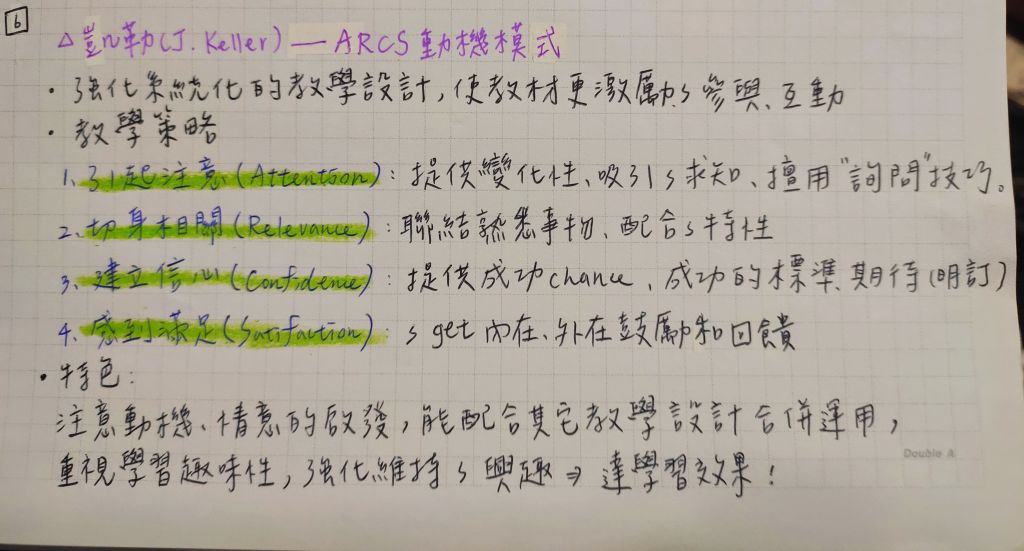 6
△ 凱勒(J. Keller) — ARCS 動機模式
• 強化系統化的教學設計, 使教材更激勵s參與、互動
• 教學策略
1. 引起注意(Attention): 提供變化性、吸引s求知、擅用"詢問"技巧。
2. 切身相關(Relevance): 聯結熟悉事物、配合s特性
3. 建立信心(Confidence): 提供成功chance、成功的標準、期待(明訂)
4. 感到滿足(Satifaction): s get 內在、外在鼓勵和回饋
• 特色:
注意動機、情意的啟發, 能配合其它教學設計合併運用,
重視學習趣味性, 強化維持s興趣⇒達學習效果!
Double A